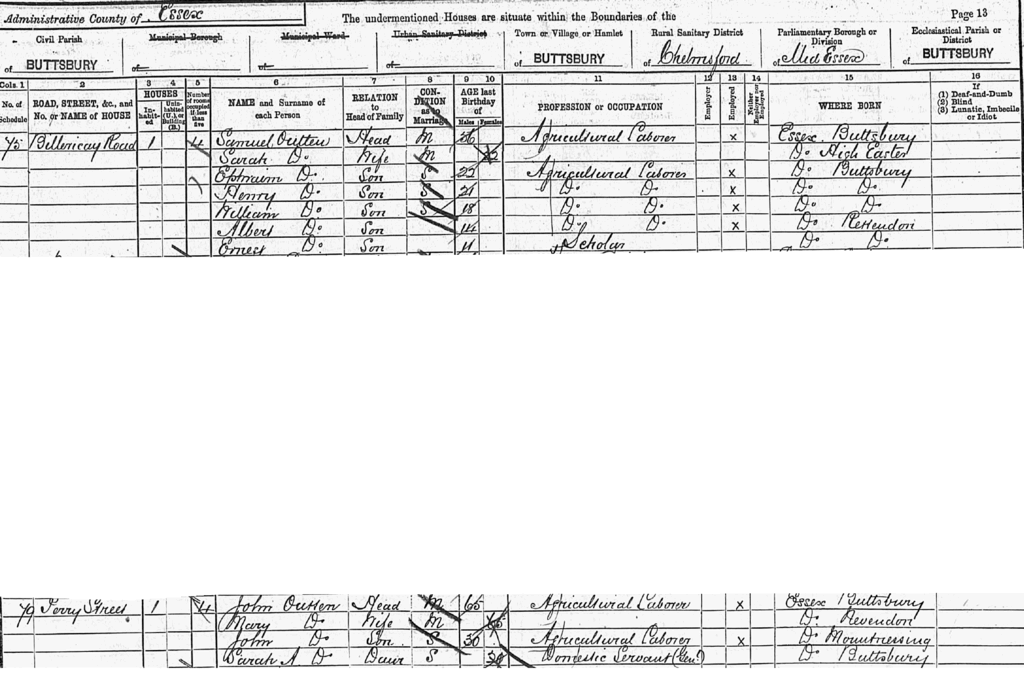 Administrative County of Essex The undermentioned Houses are situate within the Boundaries of the Page 13
Civil Parish Municipal Borough Municipal Ward Urban Sanitary District Town or Village or Hamlet Rural Sanitary District Parliamentary Borough or Division Ecclesiastical Parish or District
of BUTTSBURY of of of of BUTTSBURY of Chelmsford of Mid Essex of BUTTSBURY
Cols. 1 2 3 4 5 6 7 8 9 10 11 12 13 14 15 16
No. of Schedule ROAD, STREET, &c., and No. or NAME of HOUSE HOUSES In-habit-ed Unin-habited (U.) or Building (B.) Number of rooms occupied if less than five NAME and Surname of each Person RELATION to Head of Family CON-DITION as to Marriage AGE last Birthday of Males Females PROFESSION or OCCUPATION Employer Employed Neither Employer nor Employed WHERE BORN If (1) Deaf-and-Dumb (2) Blind (3) Lunatic, Imbecile or Idiot
75 Billericay Road 1 4 Samuel Outten Head M Agricultural Laborer x Essex Buttsbury
Sarah Do Wife M Do High Easter
Ephraim Do Son S 22 Agricultural Laborer x Do Buttsbury
Henry Do Son S 21 Do Do x Do Do
William Do Son S 18 Do Do x Do Do
Albert Do Son 14 Do Do x Do Rettendon
Ernest Do Son 11 Scholar Do Do
79 Perry Street 1 4 John Outten Head M 65 Agricultural Laborer x Essex Buttsbury
Mary Do Wife M Do
John Do Son S Agricultural Laborer x Do Mountnessing
Sarah A Do Daur S Domestic Servant (Gen:) Do Buttsbury